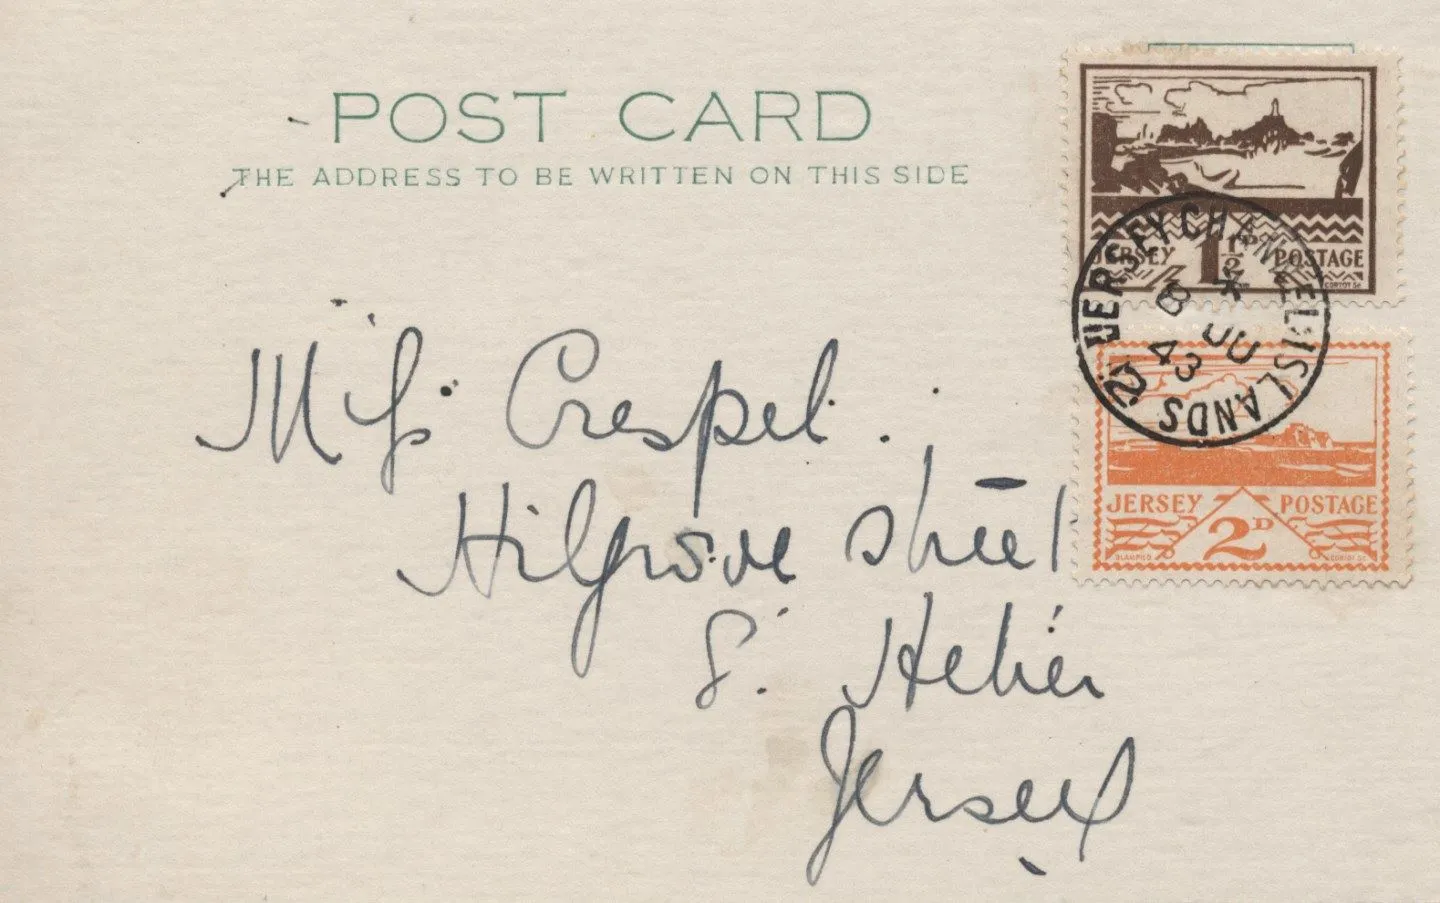 POST CARD
THE ADDRESS TO BE WRITTEN ON THIS SIDE
JERSEY 1½D POSTAGE
JERSEY CHANNEL ISLANDS
8 JU
43
JERSEY POSTAGE
2D
BLAMPIED
CORTOT SC.
Miss Crespel.
Hilgrove Street
S. Helier
Jersey